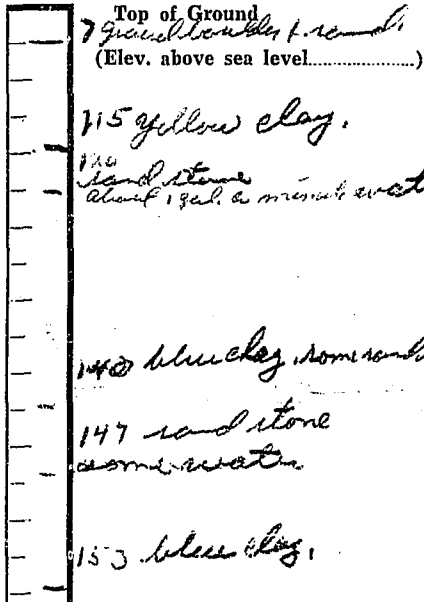 Top of Ground
7 gravel boulders & sand.
(Elev. above sea level....................)
115 yellow clay.
120
sand stone
about 1 gal. a minute wat
140 blue clay, some sand
147 sand stone
some water
153 blue clay.